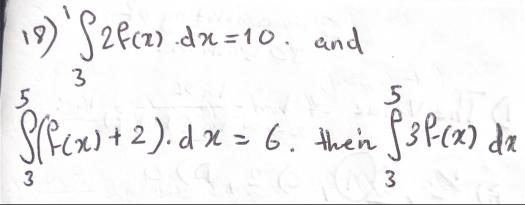 18) ∫₃¹ 2f(x).dx = 10. and
∫₃⁵ (f(x)+2).dx = 6. then ∫₃⁵ 3f(x) dx